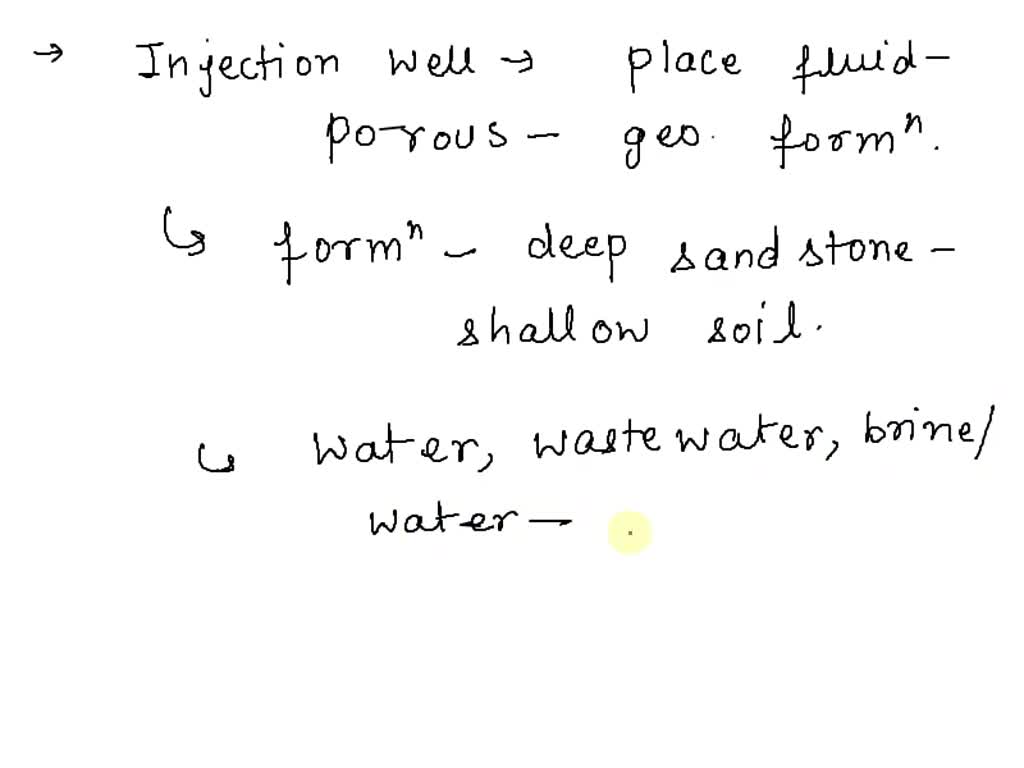 → Injection well → place fluid-
porous - geo. formⁿ.
↳ formⁿ - deep sandstone -
shallow soil.
↳ water, wastewater, brine/
water -